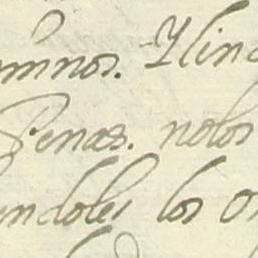 mnos. Ylino
Penas. nolos
endoles los o